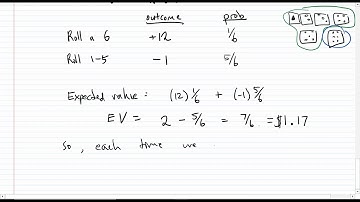 outcome prob
Roll a 6 +12 1/6
Roll 1-5 -1 5/6
Expected value: (12) 1/6 + (-1) 5/6
EV = 2 - 5/6 = 7/6 = $1.17
So, each time we